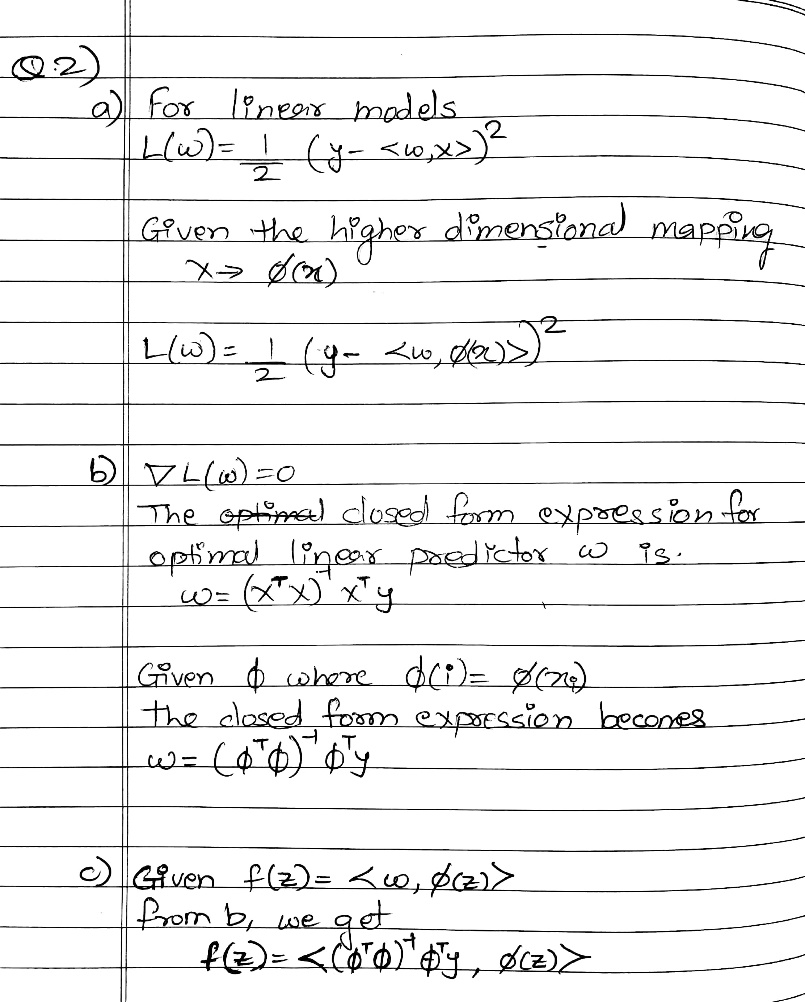 Q.2)
a) For linear models
L(w) = 1/2 (y - <w,x>)²
Given the higher dimensional mapping
x → ø(x)
L(w) = 1/2 (y - <w, ø(x)>)²
b) ∇L(w) = 0
The optimal closed form expression for
optimal linear predictor w is.
w = (xᵀx)⁻¹ xᵀy
Given ϕ where ϕ(i) = ø(xi)
The closed form expression becomes
w = (ϕᵀϕ)⁻¹ ϕᵀy
c) Given f(z) = <w, ø(z)>
from b, we get
f(z) = <(ϕᵀϕ)⁻¹ ϕᵀy, ø(z)>